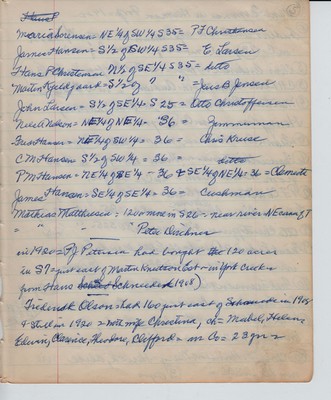 Hans P
Maria Sorensen = NE¼ of SW¼ S35 = P J Christensen
James Hansen = S½ of SW¼ S35 = E Larsen
Hans P Christensen N½ of SE¼ S35 = ditto
Martin Kjeldgaard = S½ of " " = Jens B Jensen
John Larsen = S½ of SE¼ = S 25 = Otto Christoffersen
Niels Nelson = NE¼ of NE¼ - 36 = Zimmerman
Hansen = NE¼ of SW¼ = 36 = Chris Kruse
C M Hansen S½ of SW¼ = 36 = ditto
P M Hansen = NE¼ of SE¼ - 36 & SE¼ of NE¼ = 36 = Clements
James Hansen = SE¼ of SE¼ = 36 = Cushman
Mathias Matthiesen = 120 more in S26 = near river NE corner of T
" " " Peter Dirchner
in 1920 = P J Petersen had bought the 120 acres
in S9 = just east of Martin Knutson Est = in York creek
from Hans Schneider 1908)
Frederick Olson = had 160 just east of in 1908
& still in 1920 = with wife Christina, ch = Mabel, Helen,
Edwin, Clarence, Theodore, Clifford = in Co = 23 yrs